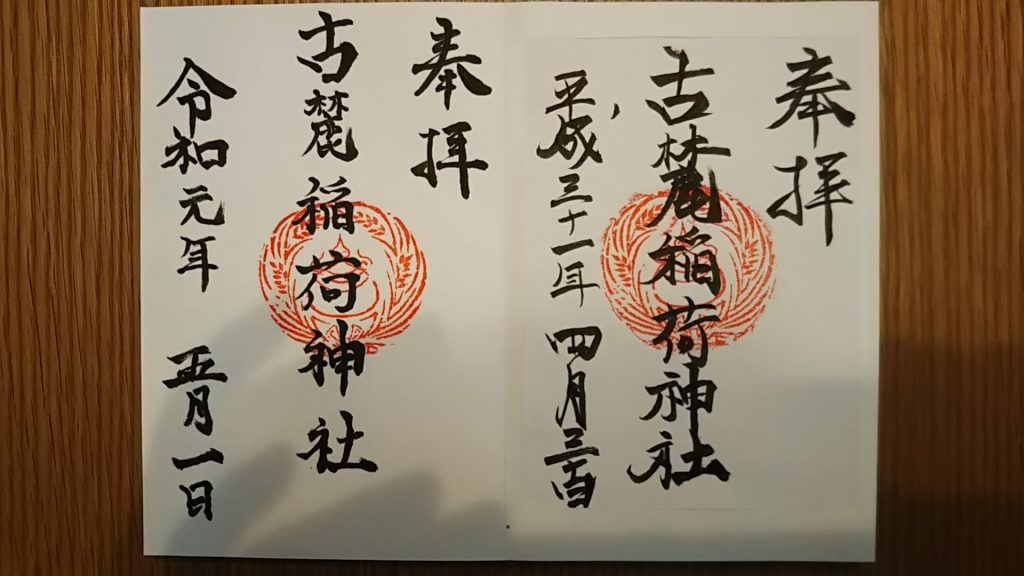 奉拝
古麓稲荷神社
平成三十一年四月三十日
奉拝
古麓稲荷神社
令和元年 五月一日